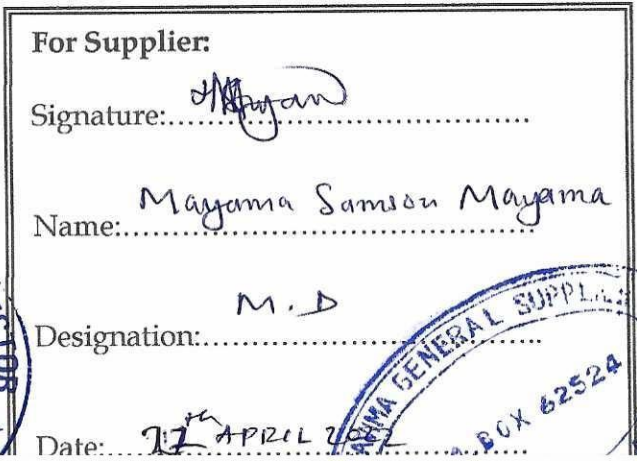 For Supplier:
Signature:
Name: Mayama Samson Mayama
Designation: M.D
Date: APRIL
GENERAL SUPPL
BOX 62524
CTOR